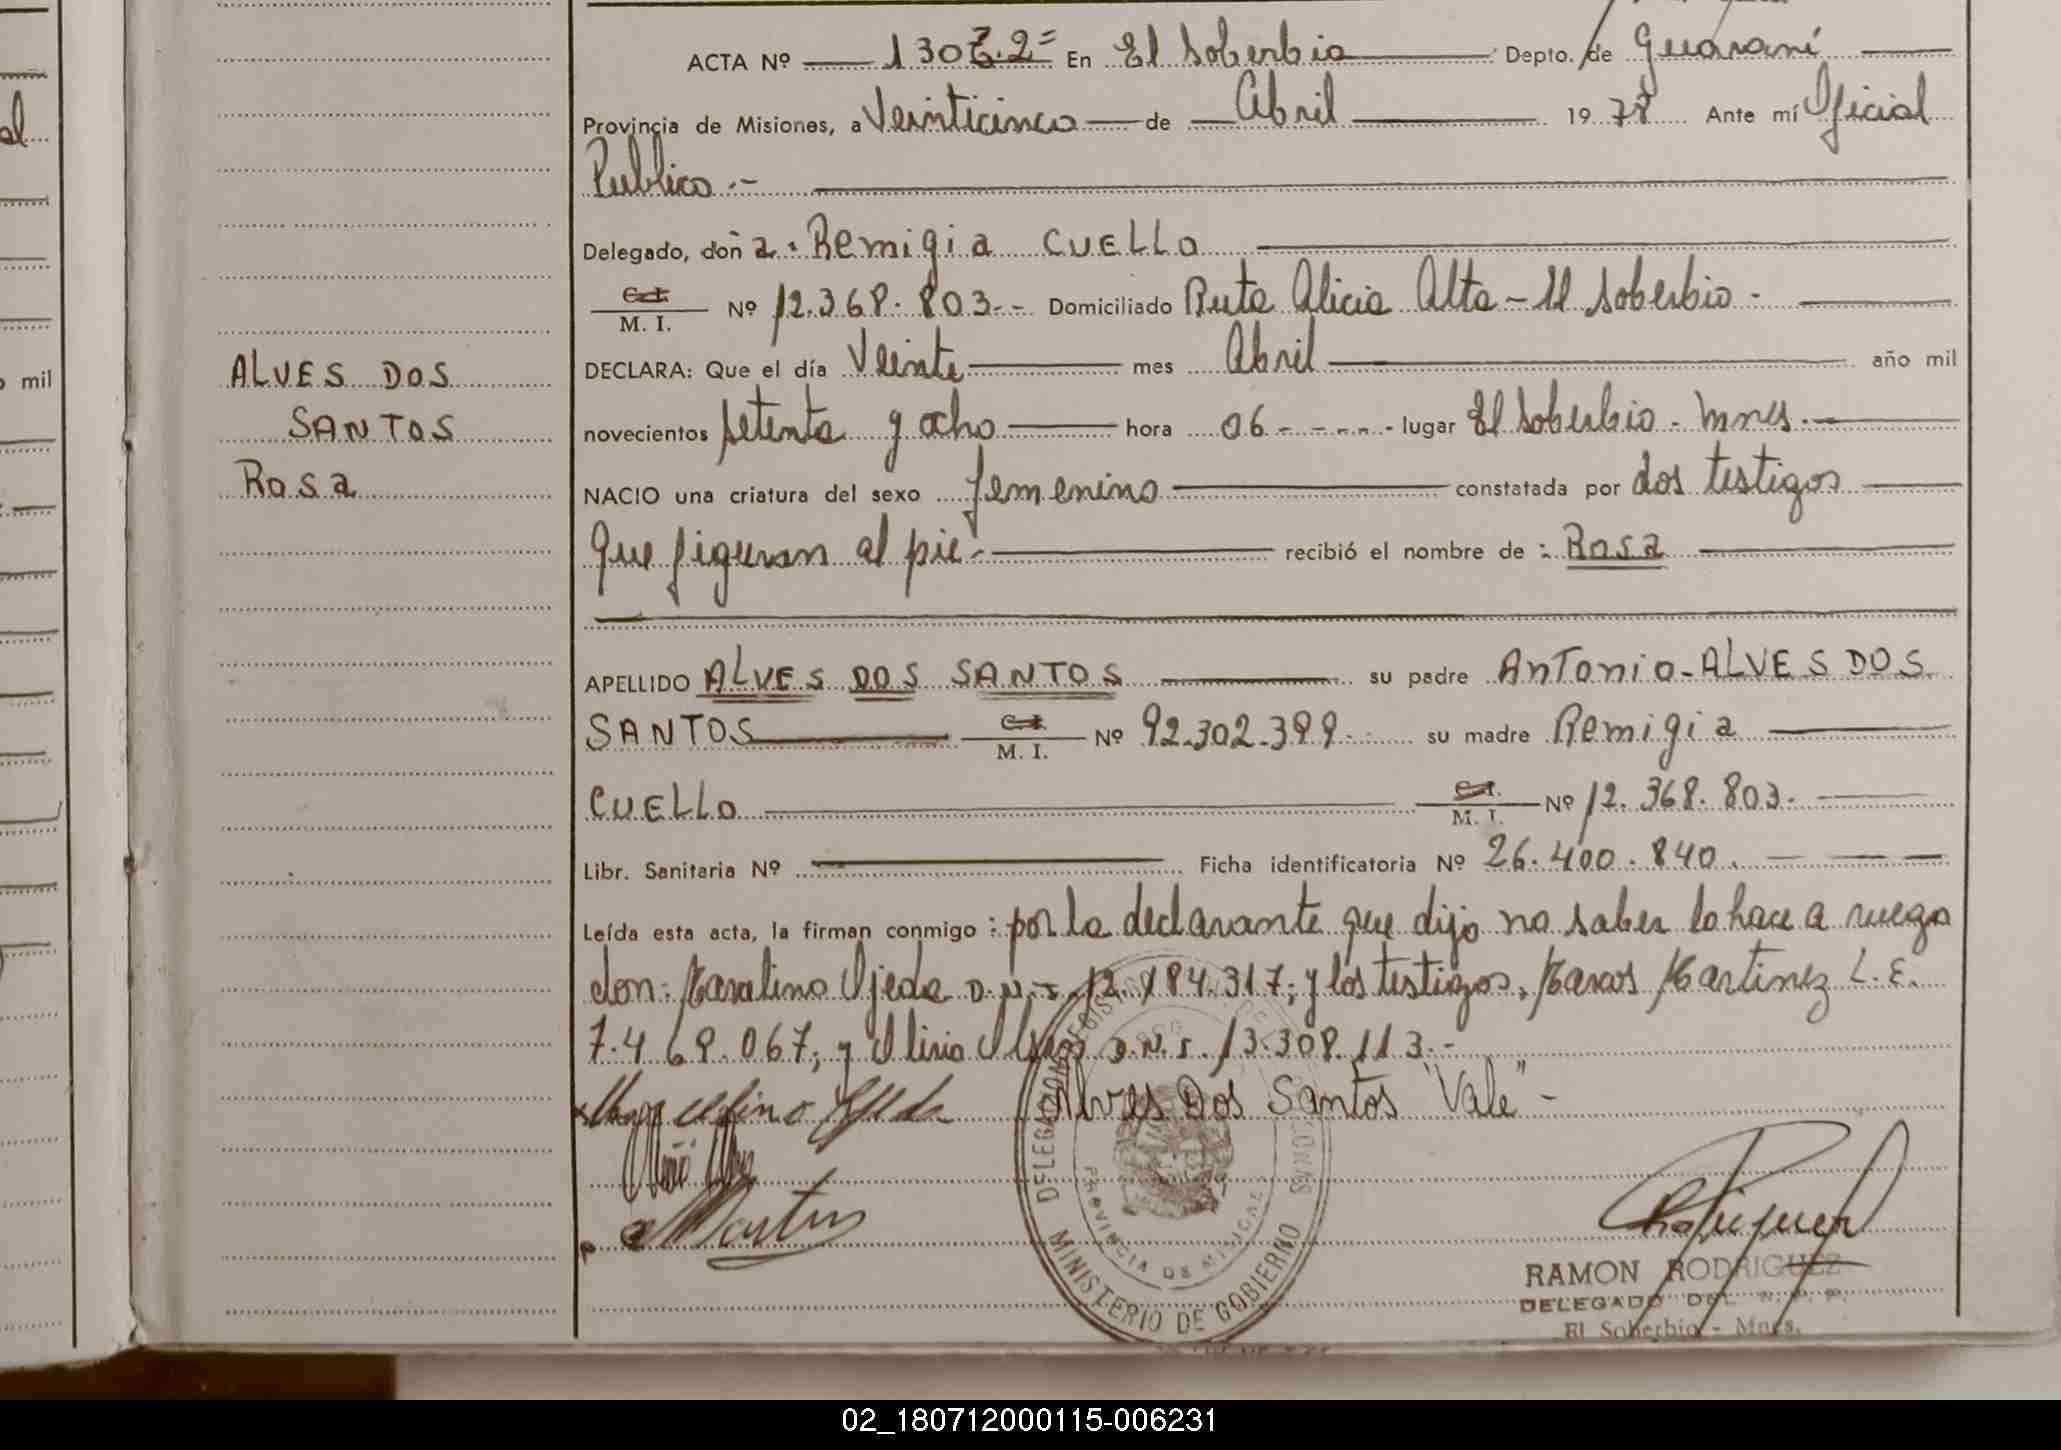 al
mil
ALVES DOS
SANTOS
Rosa
ACTA Nº En El Soberbio Depto. de Guaraní
Provincia de Misiones, a Veinticinco de Abril 1978 Ante mí Oficial
Publico.-
Delegado, doña: Remigia CUELLO
C.I. M. I. Nº 12.368.803.- Domiciliado Ruta Alicia Alta - El Soberbio -
DECLARA: Que el día Veinte mes Abril año mil
novecientos setenta y ocho hora 06 lugar El Soberbio - Mnes.
NACIO una criatura del sexo femenino constatada por dos testigos
que figuran al pie.- recibió el nombre de : Rosa
APELLIDO ALVES DOS SANTOS su padre Antonio - ALVES DOS
SANTOS C.I. M. I. Nº 92.302.399 su madre Remigia
CUELLO C.I. M. I. Nº 12.368.803.
Libr. Sanitaria Nº Ficha identificatoria Nº 26.400.840.
Leída esta acta, la firman conmigo : por la declarante que dijo no saber lo hace a ruego
don: Ojeda D.N.I. 12.184.317; y los testigos, Martinez L.E.
7.468.067; y D.N.I. 13.308.113.-
Alves Dos Santos "Vale" -
MINISTERIO DE GOBIERNO
PROVINCIA DE MISIONES
RAMON RODRIGUEZ
DELEGADO DEL R. P. P.
El Soberbio - Mnes.
02_180712000115-006231